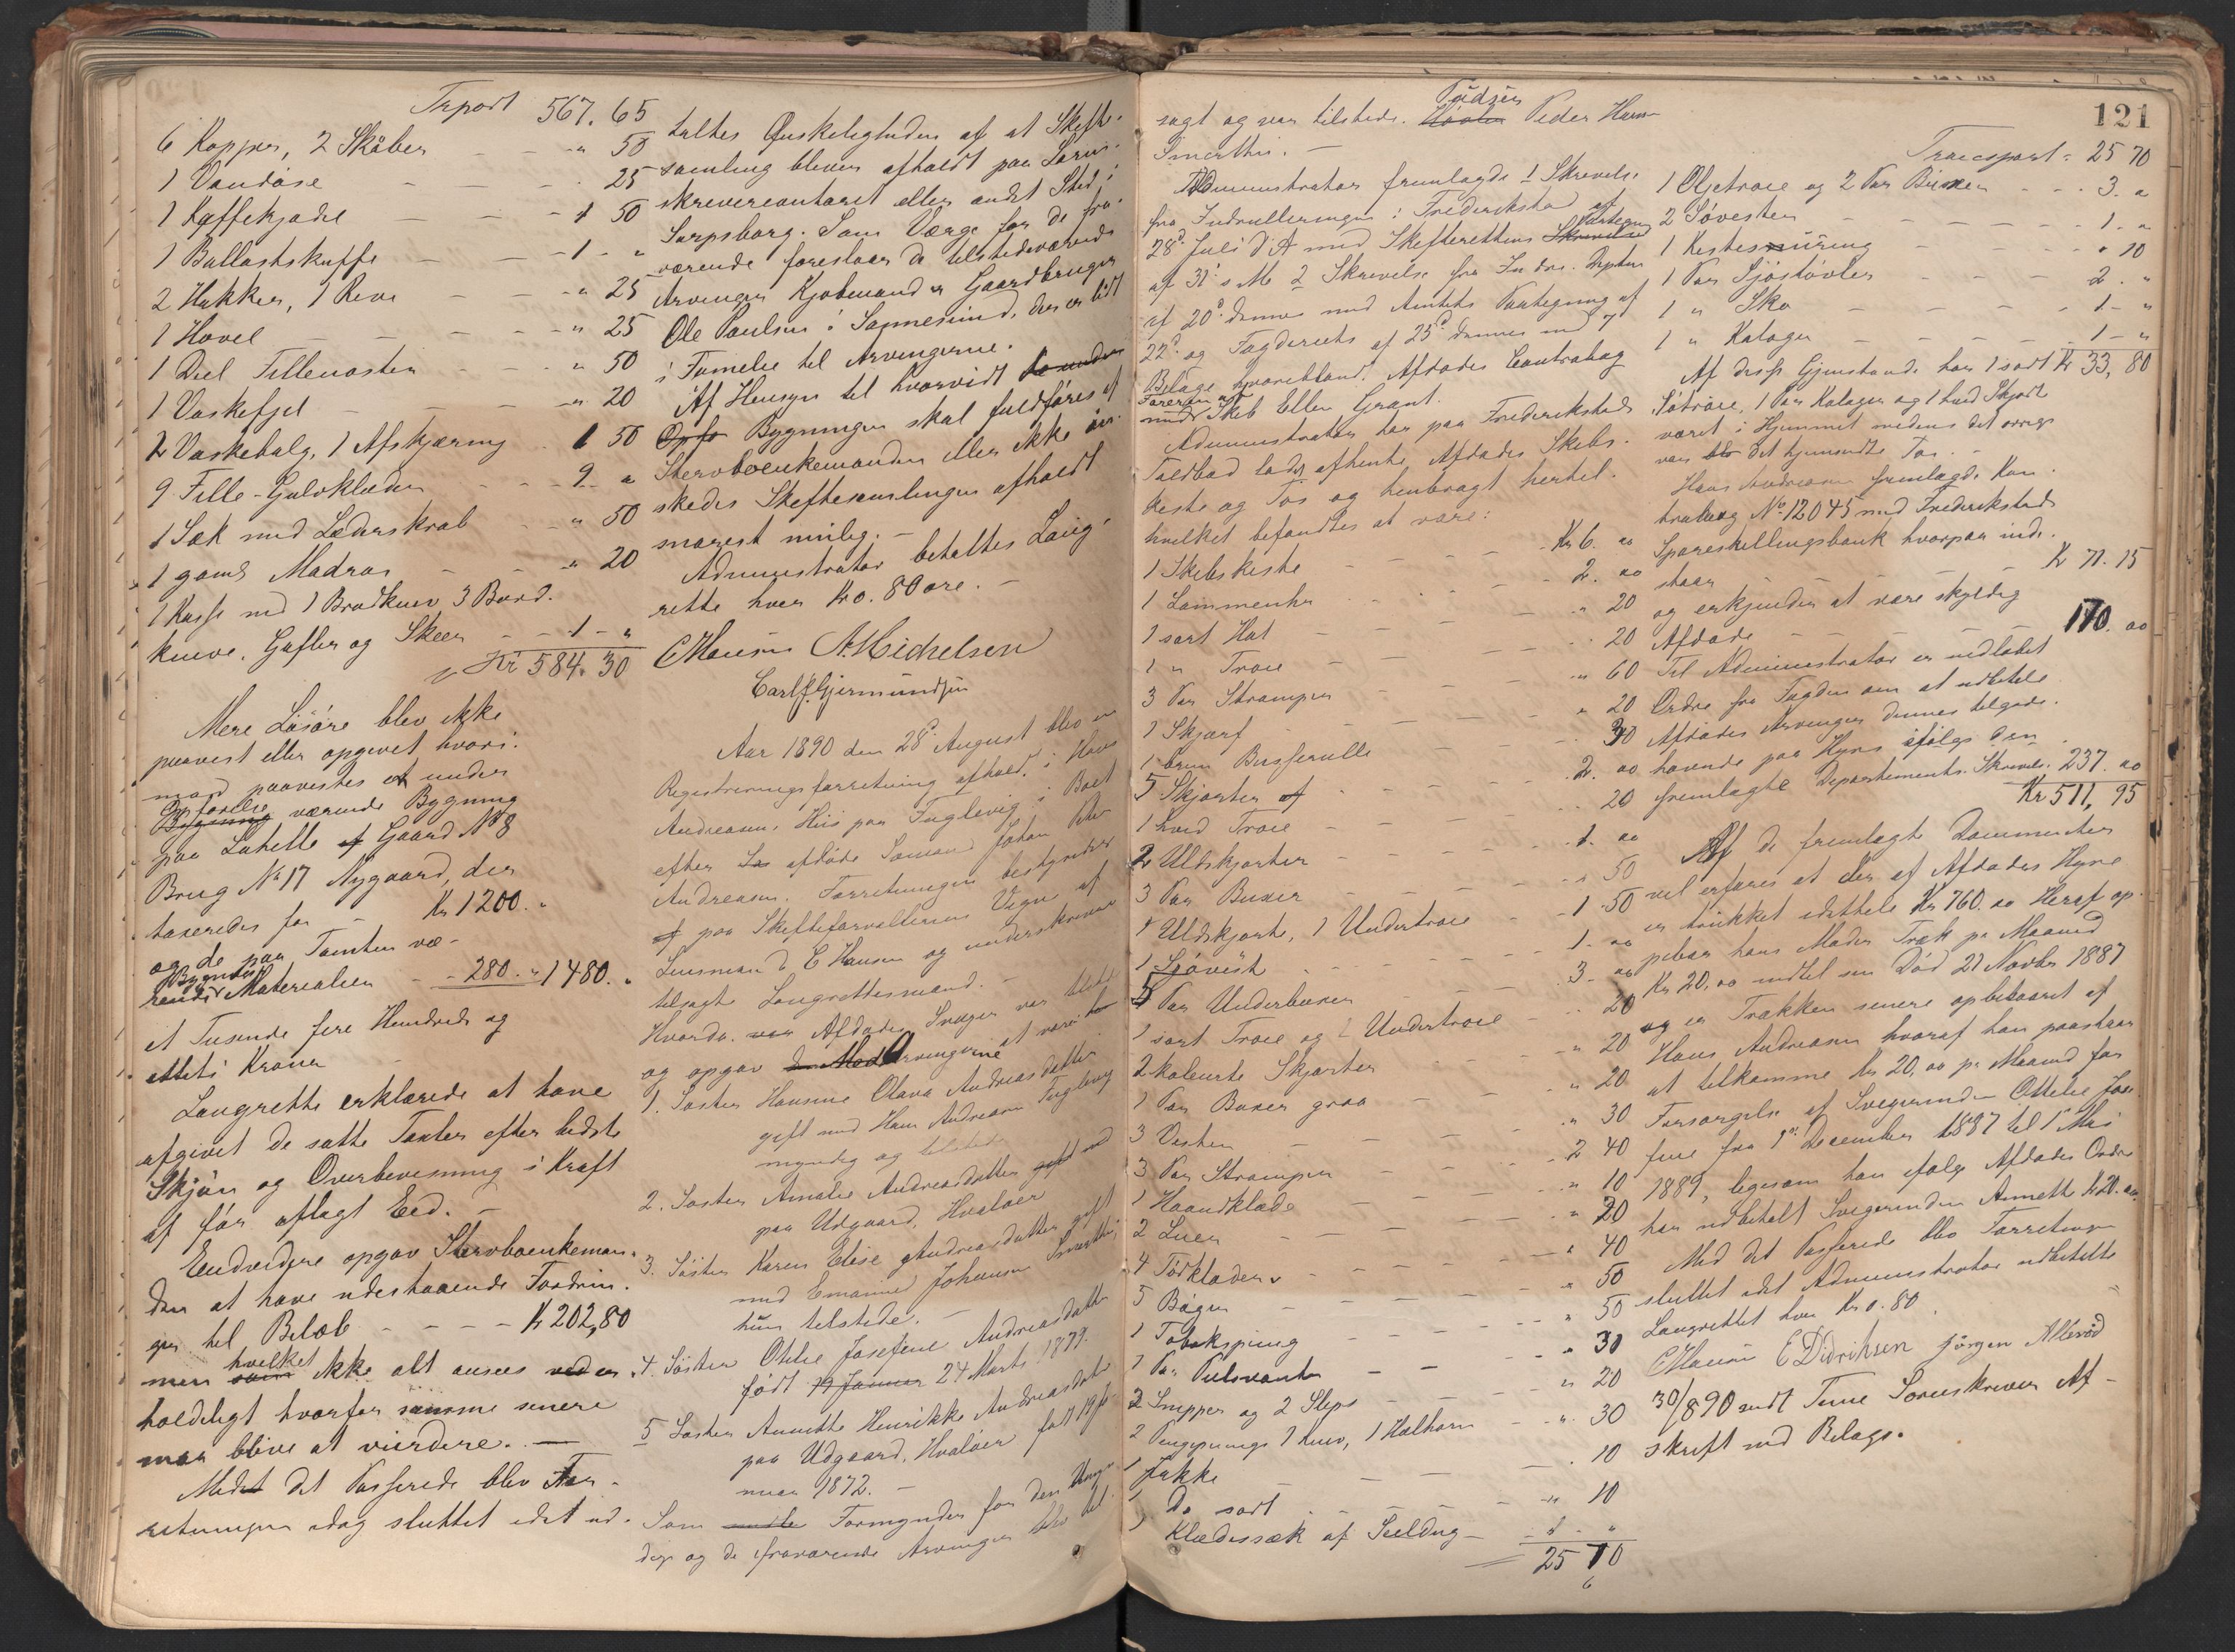 Trport 567.65
6 Kopper, 2 Skåber - - " 50
1 Vandöse - - - 25
1 Kaffekjedel - - - 1 50
1 Ballastskuffe - - 1 - "
2 Hakker, 1 Reve - - " 25
1 Hövel - - - " 25
1 Deel Fillematter - - " 50
1 Vaskefjel - - - " 20
2 Vaskebalg, 1 Afskjæring - 1 50
9 Fille-Gulvklæder - - 9 "
1 Sæk med Læderskrab - - " 50
1 gaml Madras - - " 20
1 Kasse med 1 Brödkniv 3 Bord-
knive, Gafler og Skeer - - 1 - "
Kr 584.30
Mere Lösöre blev ikke
paavist eller opgivet hvori-
mod paavistes et under
Opförelse værende Bygning
paa Gaard No 8
Brug No 17 Nygaard, der
taxeredes for - Kr 1200. "
og de paa Tomten væ-
rende Bygnings Materialier - 280. " 1480. "
et Tusende fire Hundrede og
otteti Kroner
Laugrette erklærede at have
afgivet de satte Taxter efter bedste
Skjön og Overbevisning i Kraft
af för aflagt Eed. -
Endvidere opgav Stervboenkeman-
den at have udestaaende Fordrin-
ger til Belöb - - - - Kr 202,80
men hvilket ikke alt ansees ved er-
holdeligt hvorfor samme senere
maa blive at vurdere. -
Med det Passerede blev For-
retningen idag sluttet idet ud-
taltes Önskeligheden af at Skifte-
samling bliver afholdt paa Soren-
skrivercontoret eller andet Sted i
Sarpsborg. Som Værge for de fra-
værende foreslaar de tilstedeværende
Arvinger Kjöbmand og Gaardbruger
Ole Paulsen i Sannesund, der er lidt
i Familie til Arvingerne.
Af Hensyn til hvorvidt
Bygningen skal fuldföres af
Stervboenkemanden eller ikke ön-
skedes Skiftesamlingen afholdt
snarest mulig. -
Administrator betaltes Laug-
rette hver Kr 0.80 öre. -
C Hansen A. Michelsen
Carl J. Gjermundsen
Aar 1890 den 28d August blev en
Registreringsforretning afholdt i Hans
Andreasens Hus paa Fuglevig i Boet
efter afdöde Sömand Johan Peter
Andreasen. Forretningen bestyredes
paa Skifteforvalterens Vegne af
Lensmand C Hansen og underskrevne
tilsagte Laugrettesmænd. -
Hvorda Afdödes Svoger var tilstede
og opgav Arvingerne at være:
1. Söster Hansine Olava Andreasdatter
gift med Hans Andreasen Fuglevig
myndig og tilstede
2. Söster Amalie Andreasdatter gift ved
paa Udgaard, Hvalöer
3. Söster Karen Elise Andreasdatter gift
med Emanuel Johansen Smerthu,
hun tilstede. -
4. Söster Otilie Josefine Andreasdatter
född 24 Marts 1879.
5 Söster Annette Henrikke Andreasdatter
paa Udgaard, Hvalöer född 19 Ja-
nuar 1872. -
Som Formynder for den Umyn-
dige og de fraværende Arvinger blev til-
121
sagt og var tilstede. Peder Hansen
Smerthu. -
Administrator fremlagde 1 Skrivelse
fra Indrulleringen i Frederikstad af
28d Juli d A med Skifterettens Paategning
af 31 s M 2 Skrivelse fra Indre. Depten
af 20d dennes med Amtets Paategning af
22d og Fogderiets af 25d dennes med 7
Bilage hvoriblandt Afdödes Contrabog
Föreren af Skib Ellen Grant.
Administrator har paa Frederikstad
Toldbod ladet afhente Afdödes Skibs-
kiste og Töi og henbragt hertil.
hvilket befandtes at være:
1 Skibskiste - - - Kr 6. 00
1 Lommeuhr - - - 2. 00
1 sort Hat - - - " 20
1 " Troie - - - 20
3 Par Strömper - - - " 60
1 Skjærf - - - " 20
1 brun Busserulle - - - 30
5 Skjorter - - - 2. 00
1 hvid Troie - - - 20
2 Uldskjorter - - - 1. 00
3 Par Buxer - - - " 50
1 Uldskjorte, 1 Undertroie - - 1 50
1 Sjövest - - - 1. 00
5 Par Underbuxer - - - 3. 00
1 sort Troie og 1 Undertroie - - 20
2 kulourte Skjorter - - " 20
1 Par Buxer graa - - " 20
3 Veste - - - " 30
3 Par Strömper - - 2 40
1 Haandklæde - - " 10
2 Luer - - - " 20
4 Törklæder - - - " 40
5 Böger - - - " 50
1 Tobakspung - - - " 50
1 Par Pulsvanter - - " 30
2 Snipper og 2 Slips - - " 20
2 Pengepunge 1 Kniv, 1 Halhorn - " 30
1 Jakke - - - 10
1 Do sort - - - " 10
1 Klædessæk af Seildug - 1 - "
25 70
Transport - 25 70
1 Oljetroie og 2 Par Buxer - - 3. "
2 Söveste - - - 1. "
1 Kistesnüring - - " 10
1 Par Sjöstövler - - 2. "
1 " Sko - - - 1 - "
1 " Kaloger - - - 1 - "
Kr 33,80
Af disse Gjenstande har 1 sort
Sötroie, 1 Par Kaloger og 1 hvid Skjorte
været i Hjemmet medens det övrige
var det hjemsendte Töi. -
Hans Andreasen fremlagde Kon-
trabog No 12045 med Frederikstads
Spareskillingsbank hvorpaa inde-
staar - - - Kr 71.15
og erkjender at være skyldig
Afdöde - - - 170. 00
Til Administrator er medlöbet
Ordre fra Fogden om at udbetale
Afdödes Arvinger dennes tilgode-
havende paa Hyre ifölge den
fremlagte Departements Skrivelse 237. 00
Kr 511,95
Af de fremlagte Documenter
vil erfares at der af Afdödes Hyre
er trukket idethele Kr 760. 00 Heraf op-
pebar hans Moder Træk pr Maaned
Kr 20.00 indtil sin Död 21 Novbr 1887
og er Trækken senere opbebaaret af
Hans Andreasen hvoraf han paastaar
at tilkomme Kr 20,00 pr Maaned for
Forsörgelse af Svigerinden Ottilie Jose-
fine fra 1st December 1887 til 1 Mai
1889, ligesom han ifölge Afdödes Ordre
har udbetalt Svigerinden Annette Kr 20.00.
Med det Passerede blev Forretningen
sluttet idet Administrator udbetalte
Laugrettet hver Kr 0.80.
C Hansen E Didriksen Jörgen Alleröd
30/8 90 sendt Tune Sorenskriver Af-
skrift med Bilage.